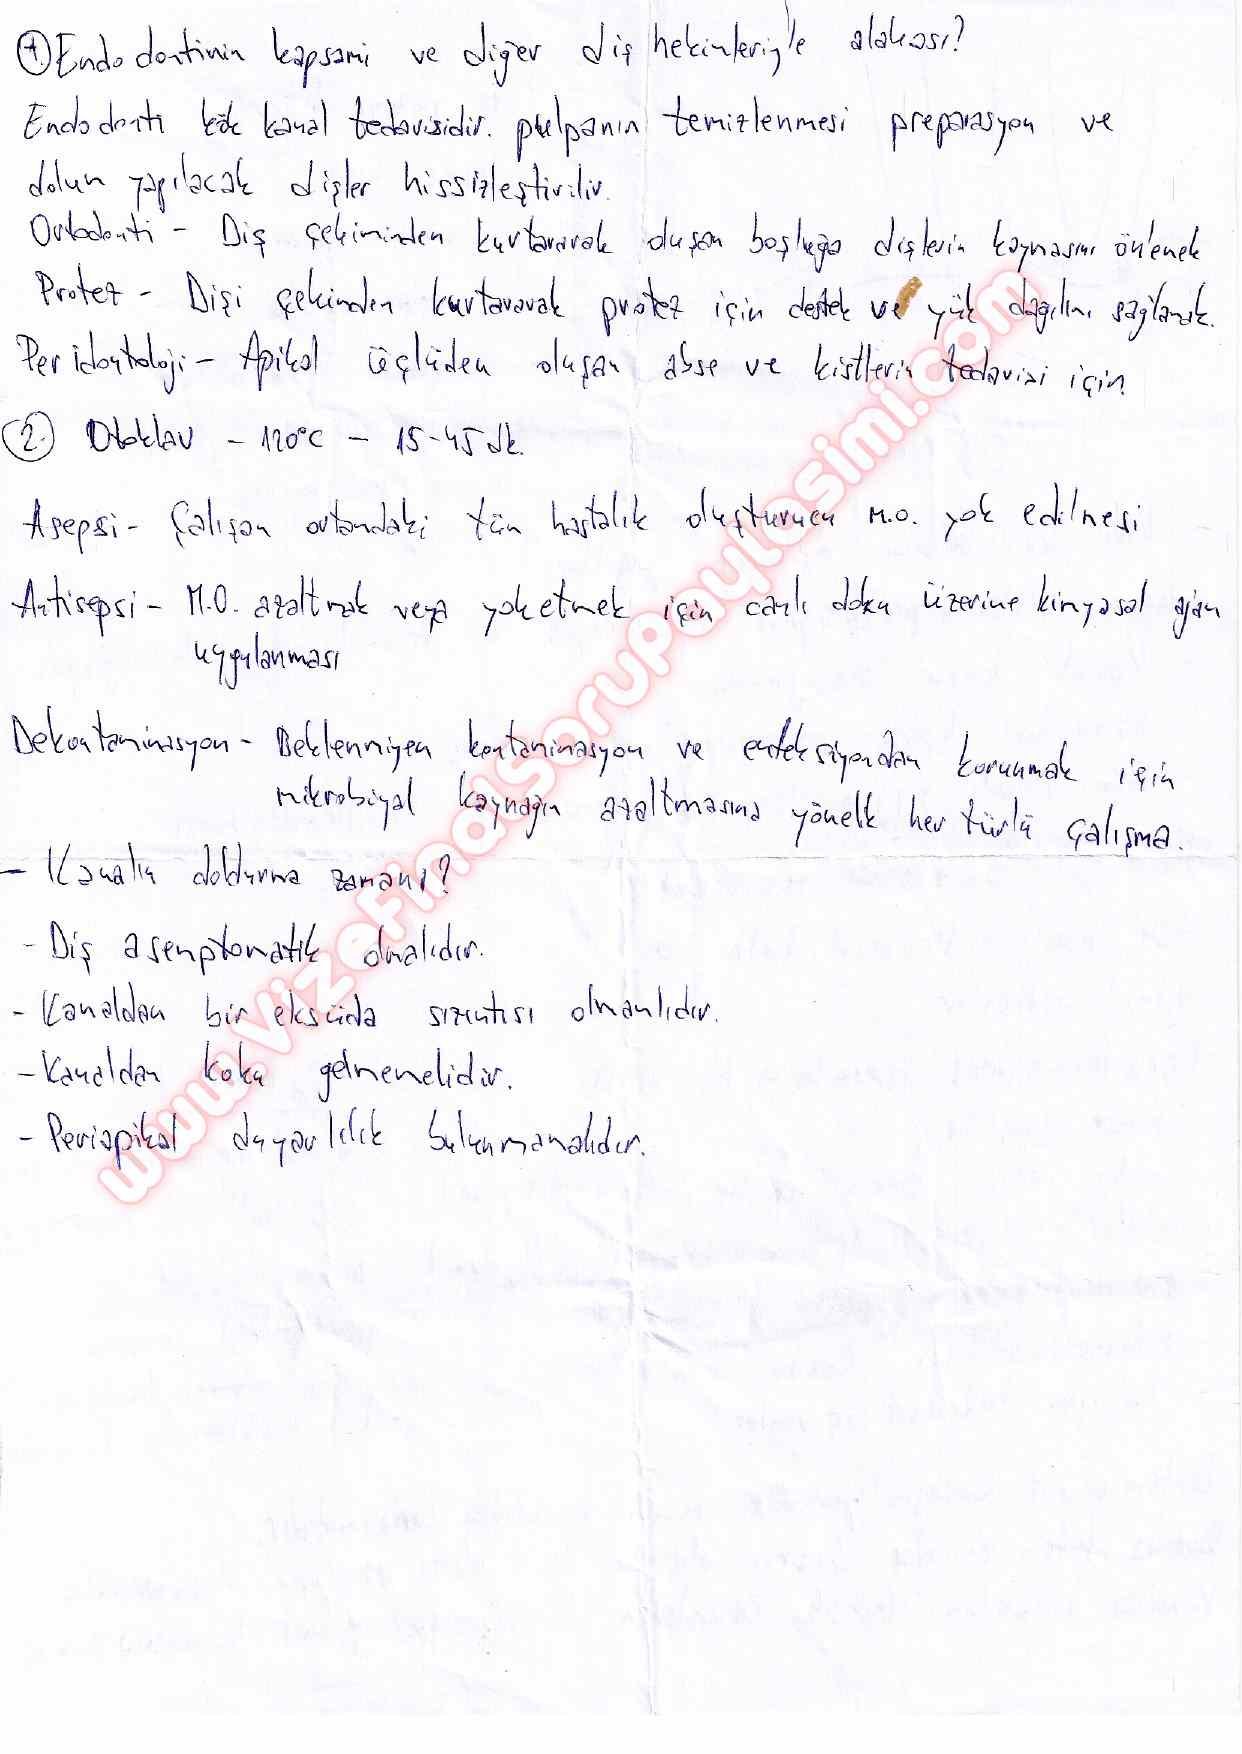 ① Endodontinin kapsamı ve diğer diş hekimleriyle alakası?
Endodonti kök kanal tedavisidir. pulpanın temizlenmesi preparasyon ve
dolum yapılacak dişler hissizleştirilir.
Ortodonti - Diş çekiminden kurtararak oluşan boşluğa dişlerin kaymasını önlemek
Protez - Dişi çekimden kurtararak protez için destek ve yük dağılımı sağlamak.
Peridontoloji - Apikal üçlüden oluşan abse ve kistlerin tedavisi için
②. Otoklav - 120°C - 15-45 dk.
Asepsi - Çalışan ortamdaki tüm hastalık oluşturucu M.O. yok edilmesi
Antisepsi - M.O. azaltmak veya yoketmek için canlı doku üzerine kimyasal ajan
uygulanması
Dekontaminasyon - Beklenmiyen kontaminasyon ve enfeksiyondan korunmak için
mikrobiyal kaynağın azaltmasına yönelik her türlü çalışma.
- Kanalın doldurma zamanı?
- Diş asemptomatik olmalıdır.
- Kanaldan bir eksüda sızıntısı olmamlıdır.
- Kanaldan koku gelmemelidir.
- Periapikal duyarlılık bulunmamalıdır.
www.VizeFinalSoruPaylasimi.com